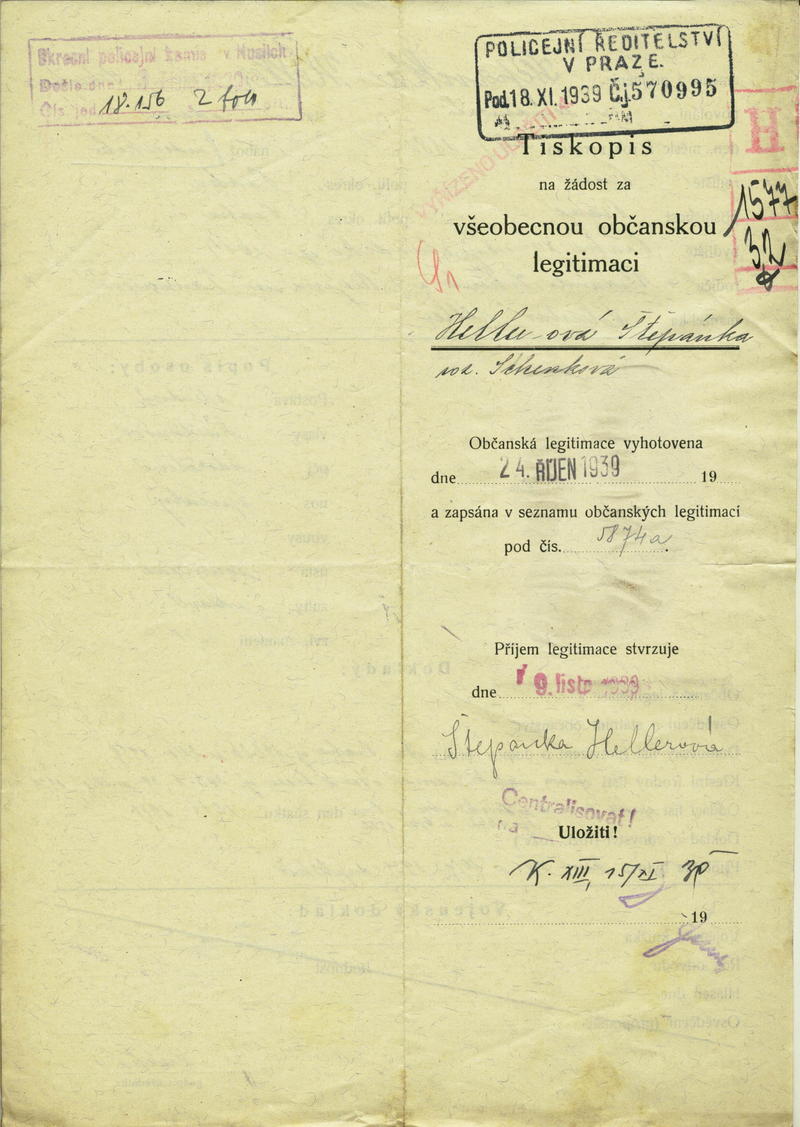 Okresní policejní komis. v Nuslích
Došlo dne
Čís. jed.
18.156 2 fol.
POLICEJNÍ ŘEDITELSTVÍ
V PRAZE.
Pod. 18. XI. 1939 Čj. 570995
VYŘÍZENO
H
1577
32
Tiskopis
na žádost za
všeobecnou občanskou
legitimaci
Heller-ová Štěpánka
roz. Schenková
Občanská legitimace vyhotovena
dne 24. ŘÍJEN 1939 19
a zapsána v seznamu občanských legitimací
pod čís. 5874a
Příjem legitimace stvrzuje
dne 9. listo 1939
Štěpánka Hellerová
Centralisovat!
Uložiti!
K. XIII, 15/XI 39
19